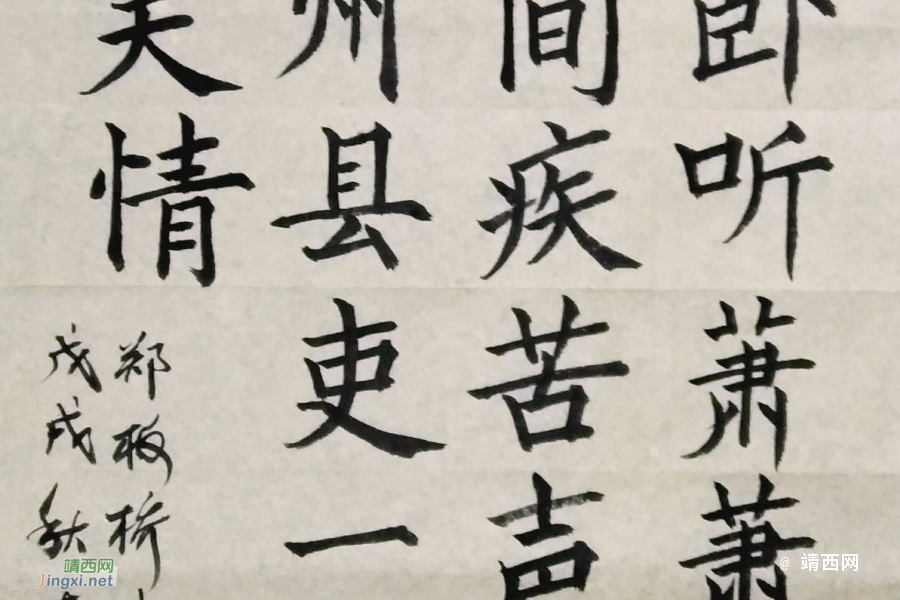 卧听萧萧
间疾苦声
州县吏一
关情
郑板桥
戊戌秋
靖西网
Jingxi.net
@ 靖西网